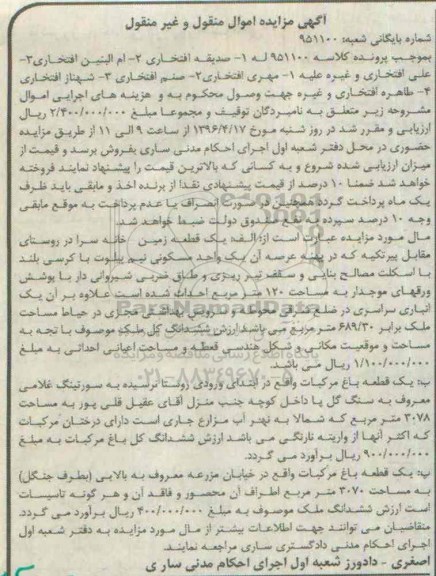 آگهی مزایده اموال منقول و غیر منقول
شماره بایگانی شعبه: ۹۵۱۱۰۰
بموجب پرونده کلاسه ۹۵۱۱۰۰ له ۱- صدیقه افتخاری ۲- ام البنین افتخاری۳-
علی افتخاری و غیره علیه ۱- مهری افتخاری۲- صنم افتخاری ۳- شهناز افتخاری
۴- طاهره افتخاری و غیره جهت وصول محکوم به و هزینه های اجرایی اموال
مشروحه زیر متعلق به نامبردگان توقیف و مجموعا مبلغ ۲/۴۰۰/۰۰۰/۰۰۰ ریال
ارزیابی و مقرر شد در روز شنبه مورخ ۱۳۹۶/۴/۱۷ از ساعت ۹ الی ۱۱ از طریق مزایده
حضوری در محل دفتر شعبه اول اجرای احکام مدنی ساری بفروش برسد و قیمت از
میزان ارزیابی شده شروع و به کسانی که بالاترین قیمت را پیشنهاد نمایند فروخته
خواهد شد ضمنا ۱۰ درصد از قیمت پیشنهادی نقدا از برنده اخذ و مابقی باید ظرف
یک ماه پرداخت گردد همچنین در صورت انصراف یا عدم پرداخت به موقع مابقی
وجه ۱۰ درصد سپرده به نفع صندوق دولت ضبط خواهد شد.
مال مورد مزایده عبارت است از: الف: یک قطعه زمین خانه سرا در روستای
مقابل پیرتکیه که در پهنه عرصه آن یک واحد مسکونی نیم پیلوت با کرسی بلند
با اسکلت مصالح بنایی و سقف تیر ریزی و طاق ضربی شیروانی دار با پوشش
ورقهای موجدار به مساحت ۱۲۰ متر مربع احداث شده است علاوه بر آن یک
انباری سراسری در ضلع شرقی محوطه و سرویس بهداشتی مجزی در حیاط مساحت
ملک برابر ۶۸۹/۳۰ متر مربع می باشد ارزش ششدانگ کل ملک موصوف با تجه به
مساحت و موقعیت مکانی و شکل هندسی قطعه و مساحت اعیانی احداثی به مبلغ
۱/۱۰۰/۰۰۰/۰۰۰ ریال می باشد.
ب: یک قطعه باغ مرکبات واقع در ابتدای ورودی روستا نرسیده به سورتینگ غلامی
معروف به سنگ گل پا داخل کوچه جنب منزل آقای عقیل قلی پور به مساحت
۳۰۷۸ متر مربع که شمالا به نهر آب مزارع جاری است دارای درختان مرکبات
که اکثر آنها از واریته نارنگی می باشد ارزش ششدانگ کل باغ مرکبات به مبلغ
۹۰۰/۰۰۰/۰۰۰ ریال برآورد می گردد.
پ: یک قطعه باغ مرکبات واقع در خیابان مزرعه معروف به بالابی (بطرف جنگل)
به مساحت ۳۰۷۰ متر مربع اطراف آن محصور و فاقد آن و هر گونه تاسیسات
است ارزش ششدانگ ملک موصوف به مبلغ ۴۰۰/۰۰۰/۰۰۰ ریال برآورد می گردد.
متقاضیان می توانند جهت اطلاعات بیشتر از مال مورد مزایده به دفتر شعبه اول
اجرای احکام مدنی دادگستری ساری مراجعه نمایند.
اصغری - دادورز شعبه اول اجرای احکام مدنی ساری
ParsNamadData
پایگاه اطلاع رسانی مناقصه و مزایده
۰۲۱-۸۸۳۴۹۶۷۰